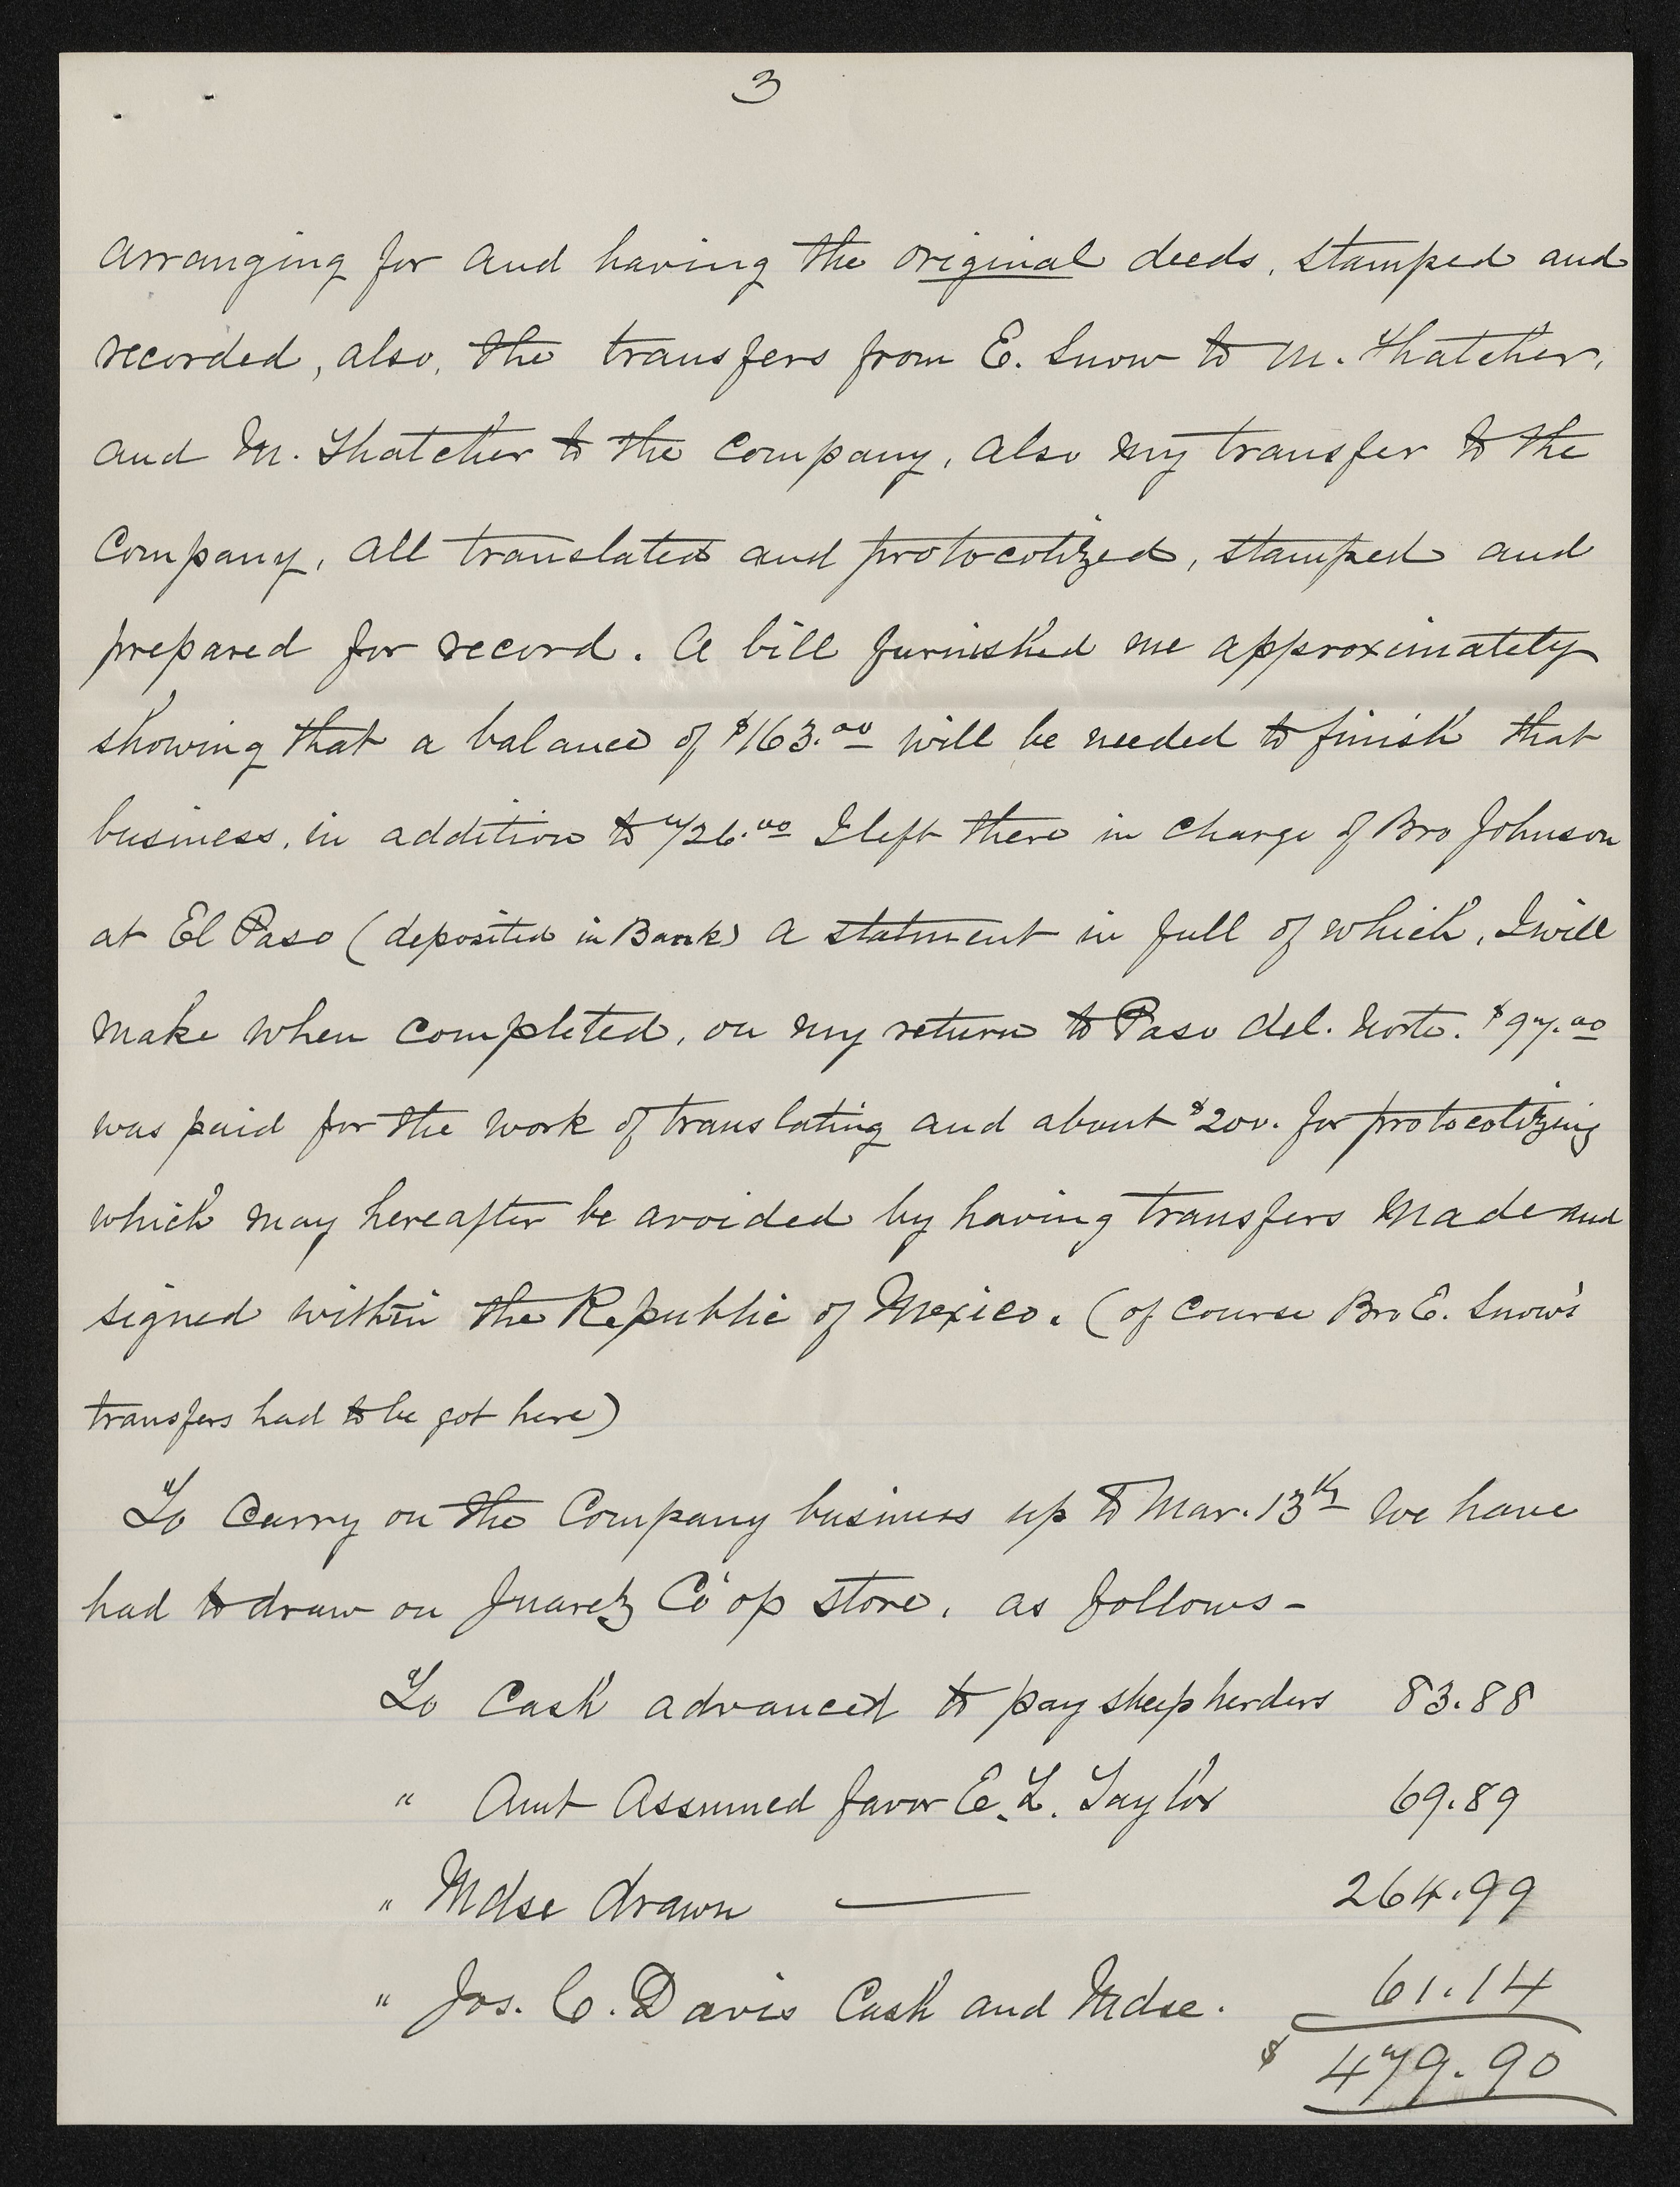 3
arranging for and having the original deeds, stamped and
recorded, also, the transfers from E. Snow to M. Thatcher,
and M. Thatcher to the Company, also my transfer to the
Company, all translated and protocolized, stamped and
prepared for record. A bill furnished me approximately
showing that a balance of $163.00 will be needed to finish that
business, in addition to 726.00 I left there in charge of Bro Johnson
at El Paso (deposited in Bank) a statment in full of which, I will
make when completed, on my return to Paso del. Norte. $97.00
was paid for the work of translating and about $200. for protocolizing
which may hereafter be avoided by having transfers made and
signed within the Republic of Mexico. (of course Bro E. Snow's
transfers had to be got here)
To Carry on the Company business up to Mar. 13th we have
had to draw on Juarez Co op store, as follows-
To Cash advanced to pay sheep herders 83.88
" Amt Assumed favor E. L. Taylor 69.89
" Mdse drawn — 264.99
" Jos. C. Davis Cash and Mdse. 61.14
$ 479.90